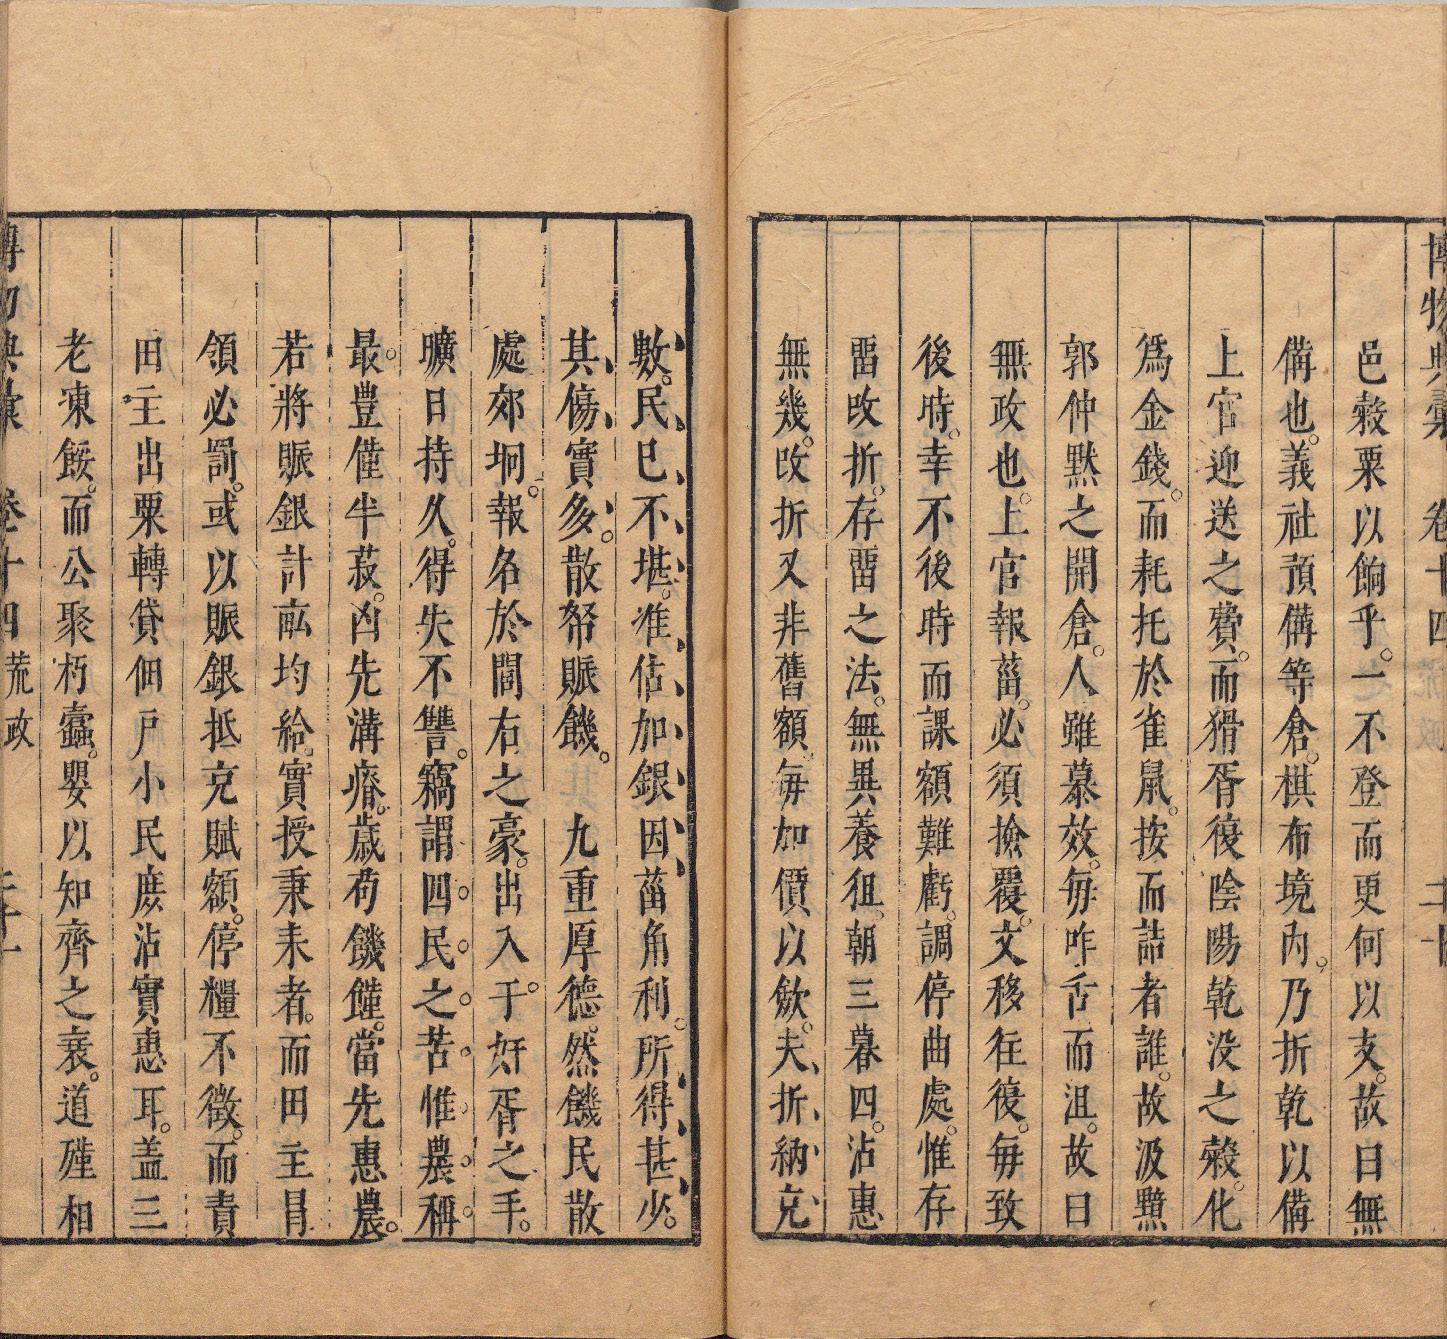 博物典彙 卷十四
邑穀粟以餉乎。一不登而更何以支。故曰無
備也。義社預備等倉。棋布境內。乃折乾以備
上官迎送之費。而猾胥復陰陽乾没之。穀化
爲金錢。而耗托於雀鼠。按而詰者誰。故汲黯
郭仲默之開倉。人雖慕效。每咋舌而沮。故曰
無政也。上官報菑。必須撿覆。文移往復。每致
後時。幸不後時而課額難虧。調停曲處。惟存
畱改折。存畱之法。無異養狙。朝三暮四。沾惠
無幾。改折又非舊額。每加價以歛。夫折納克
數。民已不堪。准估加銀。因菑角利。所得甚少。
其傷實多。散帑賑饑。九重厚德。然饑民散
處郊坰。報名於閭右之豪。出入于奸胥之手。
曠日持久。得失不讐。竊謂四民之苦惟農稱
最。豊僅半菽。凶先溝瘠。歲荀饑饉。當先惠農。
若將賑銀計畝均給。實授秉耒者。而田主冒
領必罰。或以賑銀抵充賦額。停糧不徵。而責
田主出粟轉貸佃戸小民庶沾實惠耳。盖三
老凍餒。而公聚朽蠹。嬰以知齊之衰。道殣相
博物典彙 卷十四 荒政